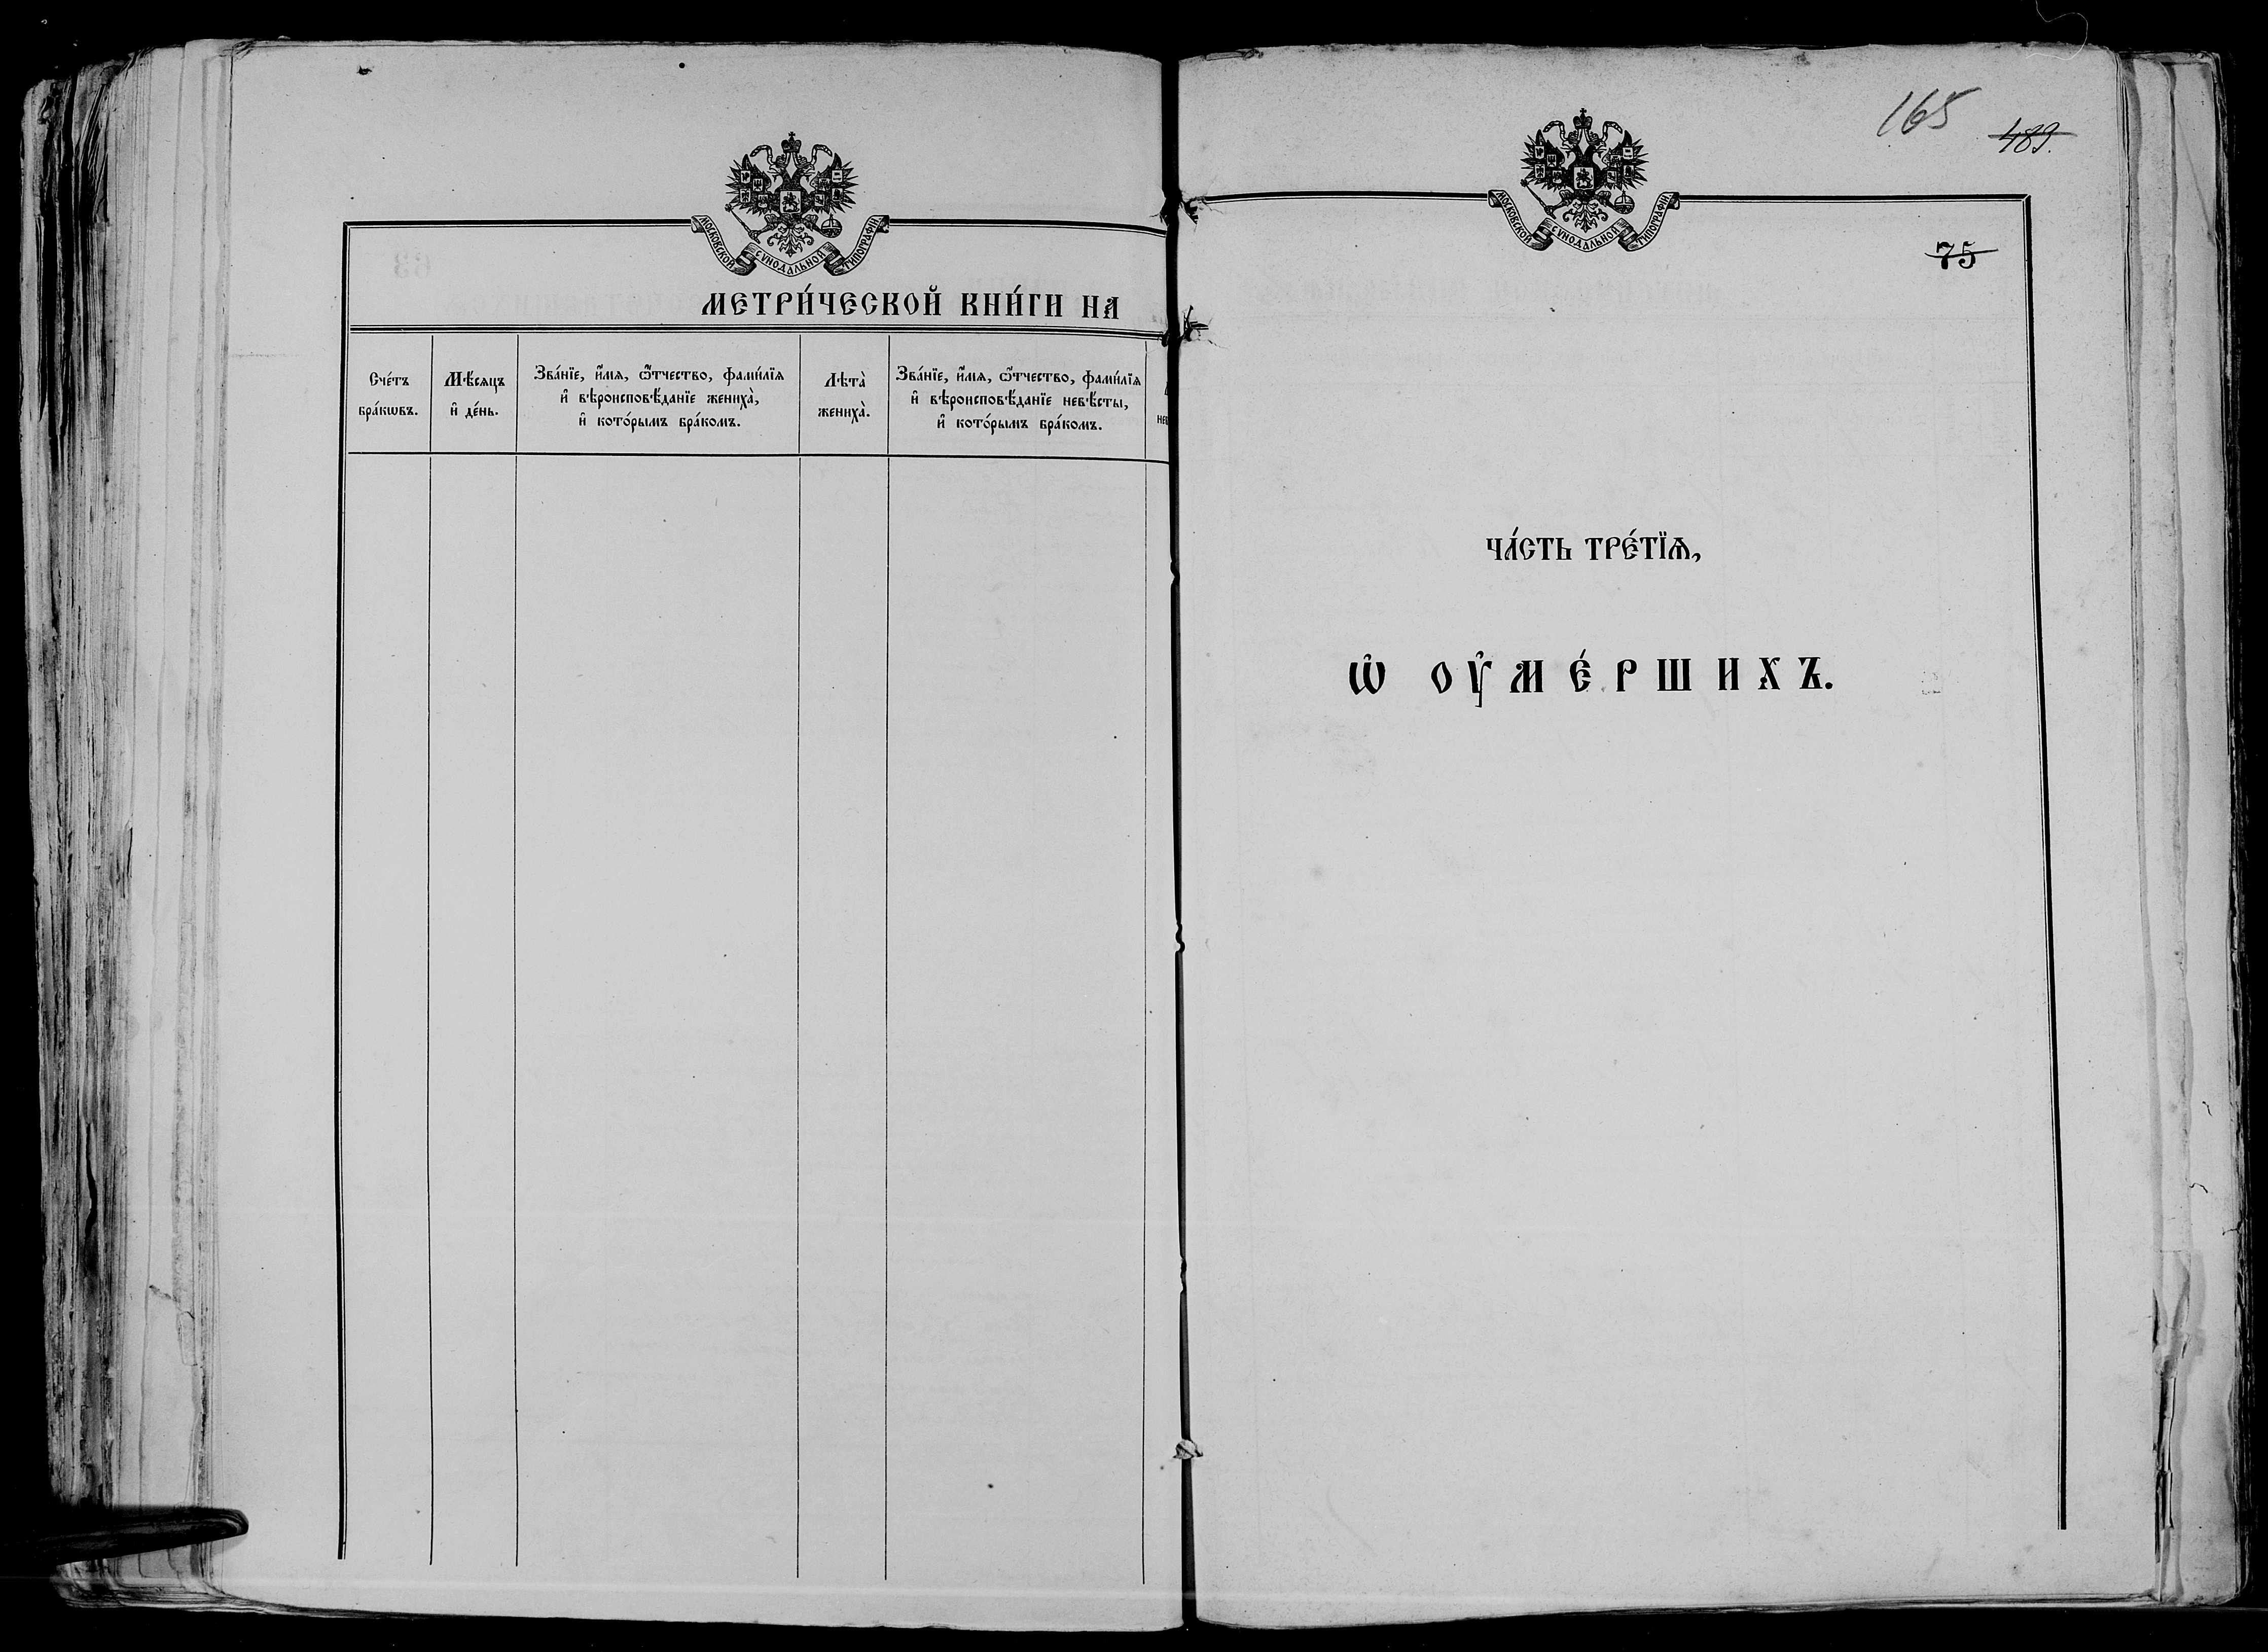 МОСКОВСКОЙ СѴНОДАЛЬНОЙ ТИПОГРАФІИ
МЕТРИ́ЧЕСКОЙ КНИ́ГИ НА
Сче́тъ
бра́кѡвъ.
Мѣ́сяцъ
и҆ де́нь.
Зва́нїе, и҆́мѧ, ѻ҆́тчество, фами́лїѧ
и҆ вѣроисповѣ́данїе жениха̀,
и҆ кото́рымъ бра́комъ.
Лѣта̀
жениха̀.
Зва́нїе, и҆́мѧ, ѻ҆́тчество, фами́лїѧ
и҆ вѣроисповѣ́данїе невѣ́сты,
и҆ кото́рымъ бра́комъ.
165
489.
МОСКОВСКОЙ СѴНОДАЛЬНОЙ ТИПОГРАФІИ
75
ЧА́СТЬ ТРЕ́ТЇѦ,
Ѡ҆ ОУ҆МЕ́РШИХЪ.